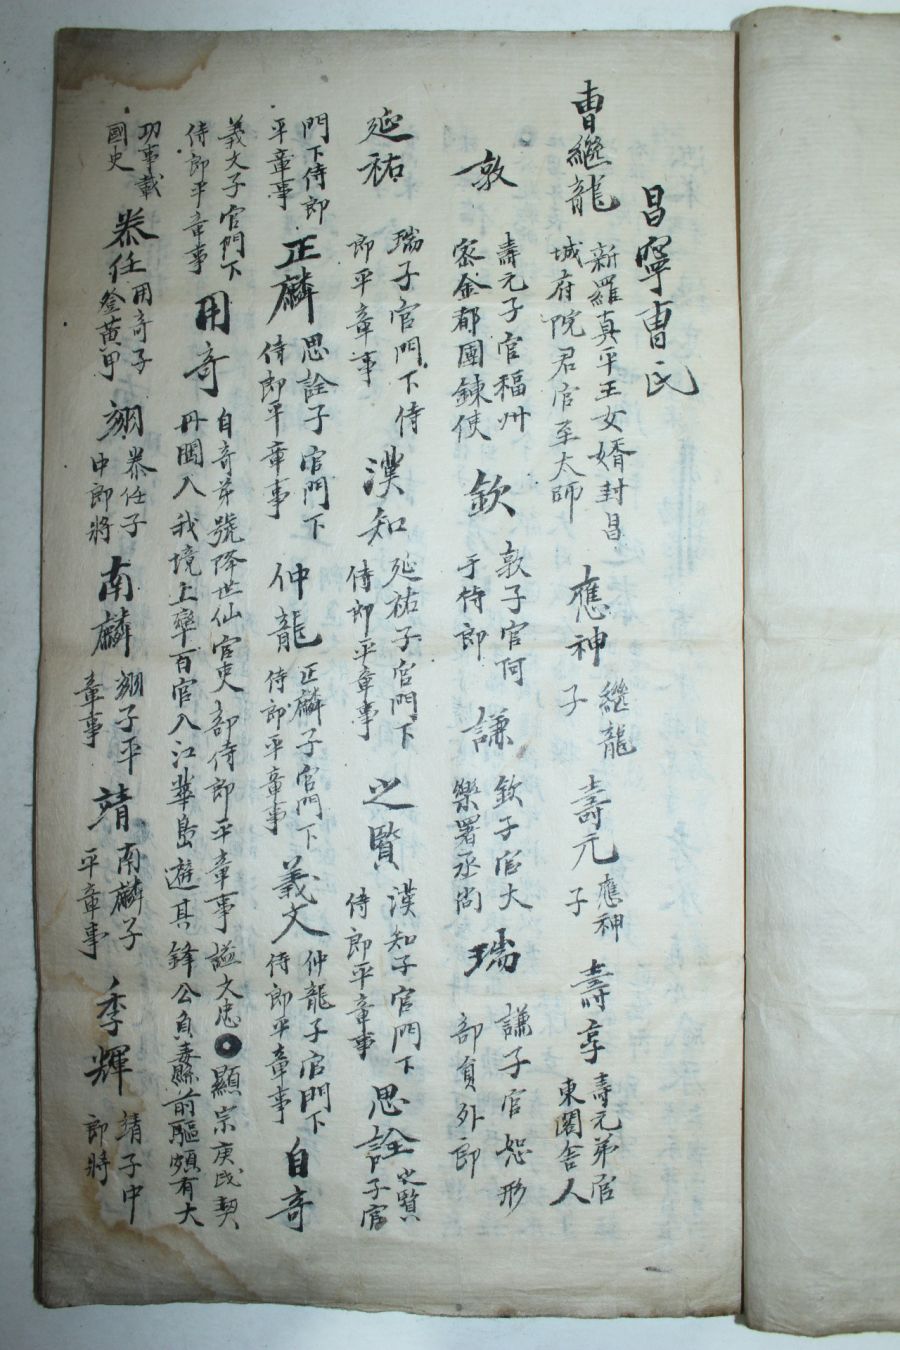 昌寧曺氏
曺繼龍 新羅真平王女婿封昌城府院君官至太師 應神 繼龍子 壽元 應神子 壽亨 壽元弟官東閣舍人
敦 壽元子官福州密金都團鍊使 欽 敦子官何手侍郎 謙 欽子官大樂署丞尚 瑞 謙子官恕形部員外郎
延祐 瑞子官門下侍郎平章事 漢知 延祐子官門下侍郎平章事 之賢 漢知子官門下侍郎平章事 思詮 之賢子官
門下侍郎平章事 正麟 思詮子官門下侍郎平章事 仲龍 正麟子官門下侍郎平章事 義文 仲龍子官門下侍郎平章事 自奇
義文子官門下侍郎平章事 用奇 自奇弟號降世仙官吏部侍郎平章事謚文忠 顯宗庚戌契丹闌入我境上率百官入江華島遊其鋒公負毒縣前驅頗有大
功事載國史 恭任 用奇子登黄甲 翊 恭任子中郎將 南麟 翊子平章事 靖 南麟子平章事 季輝 靖子中郎將